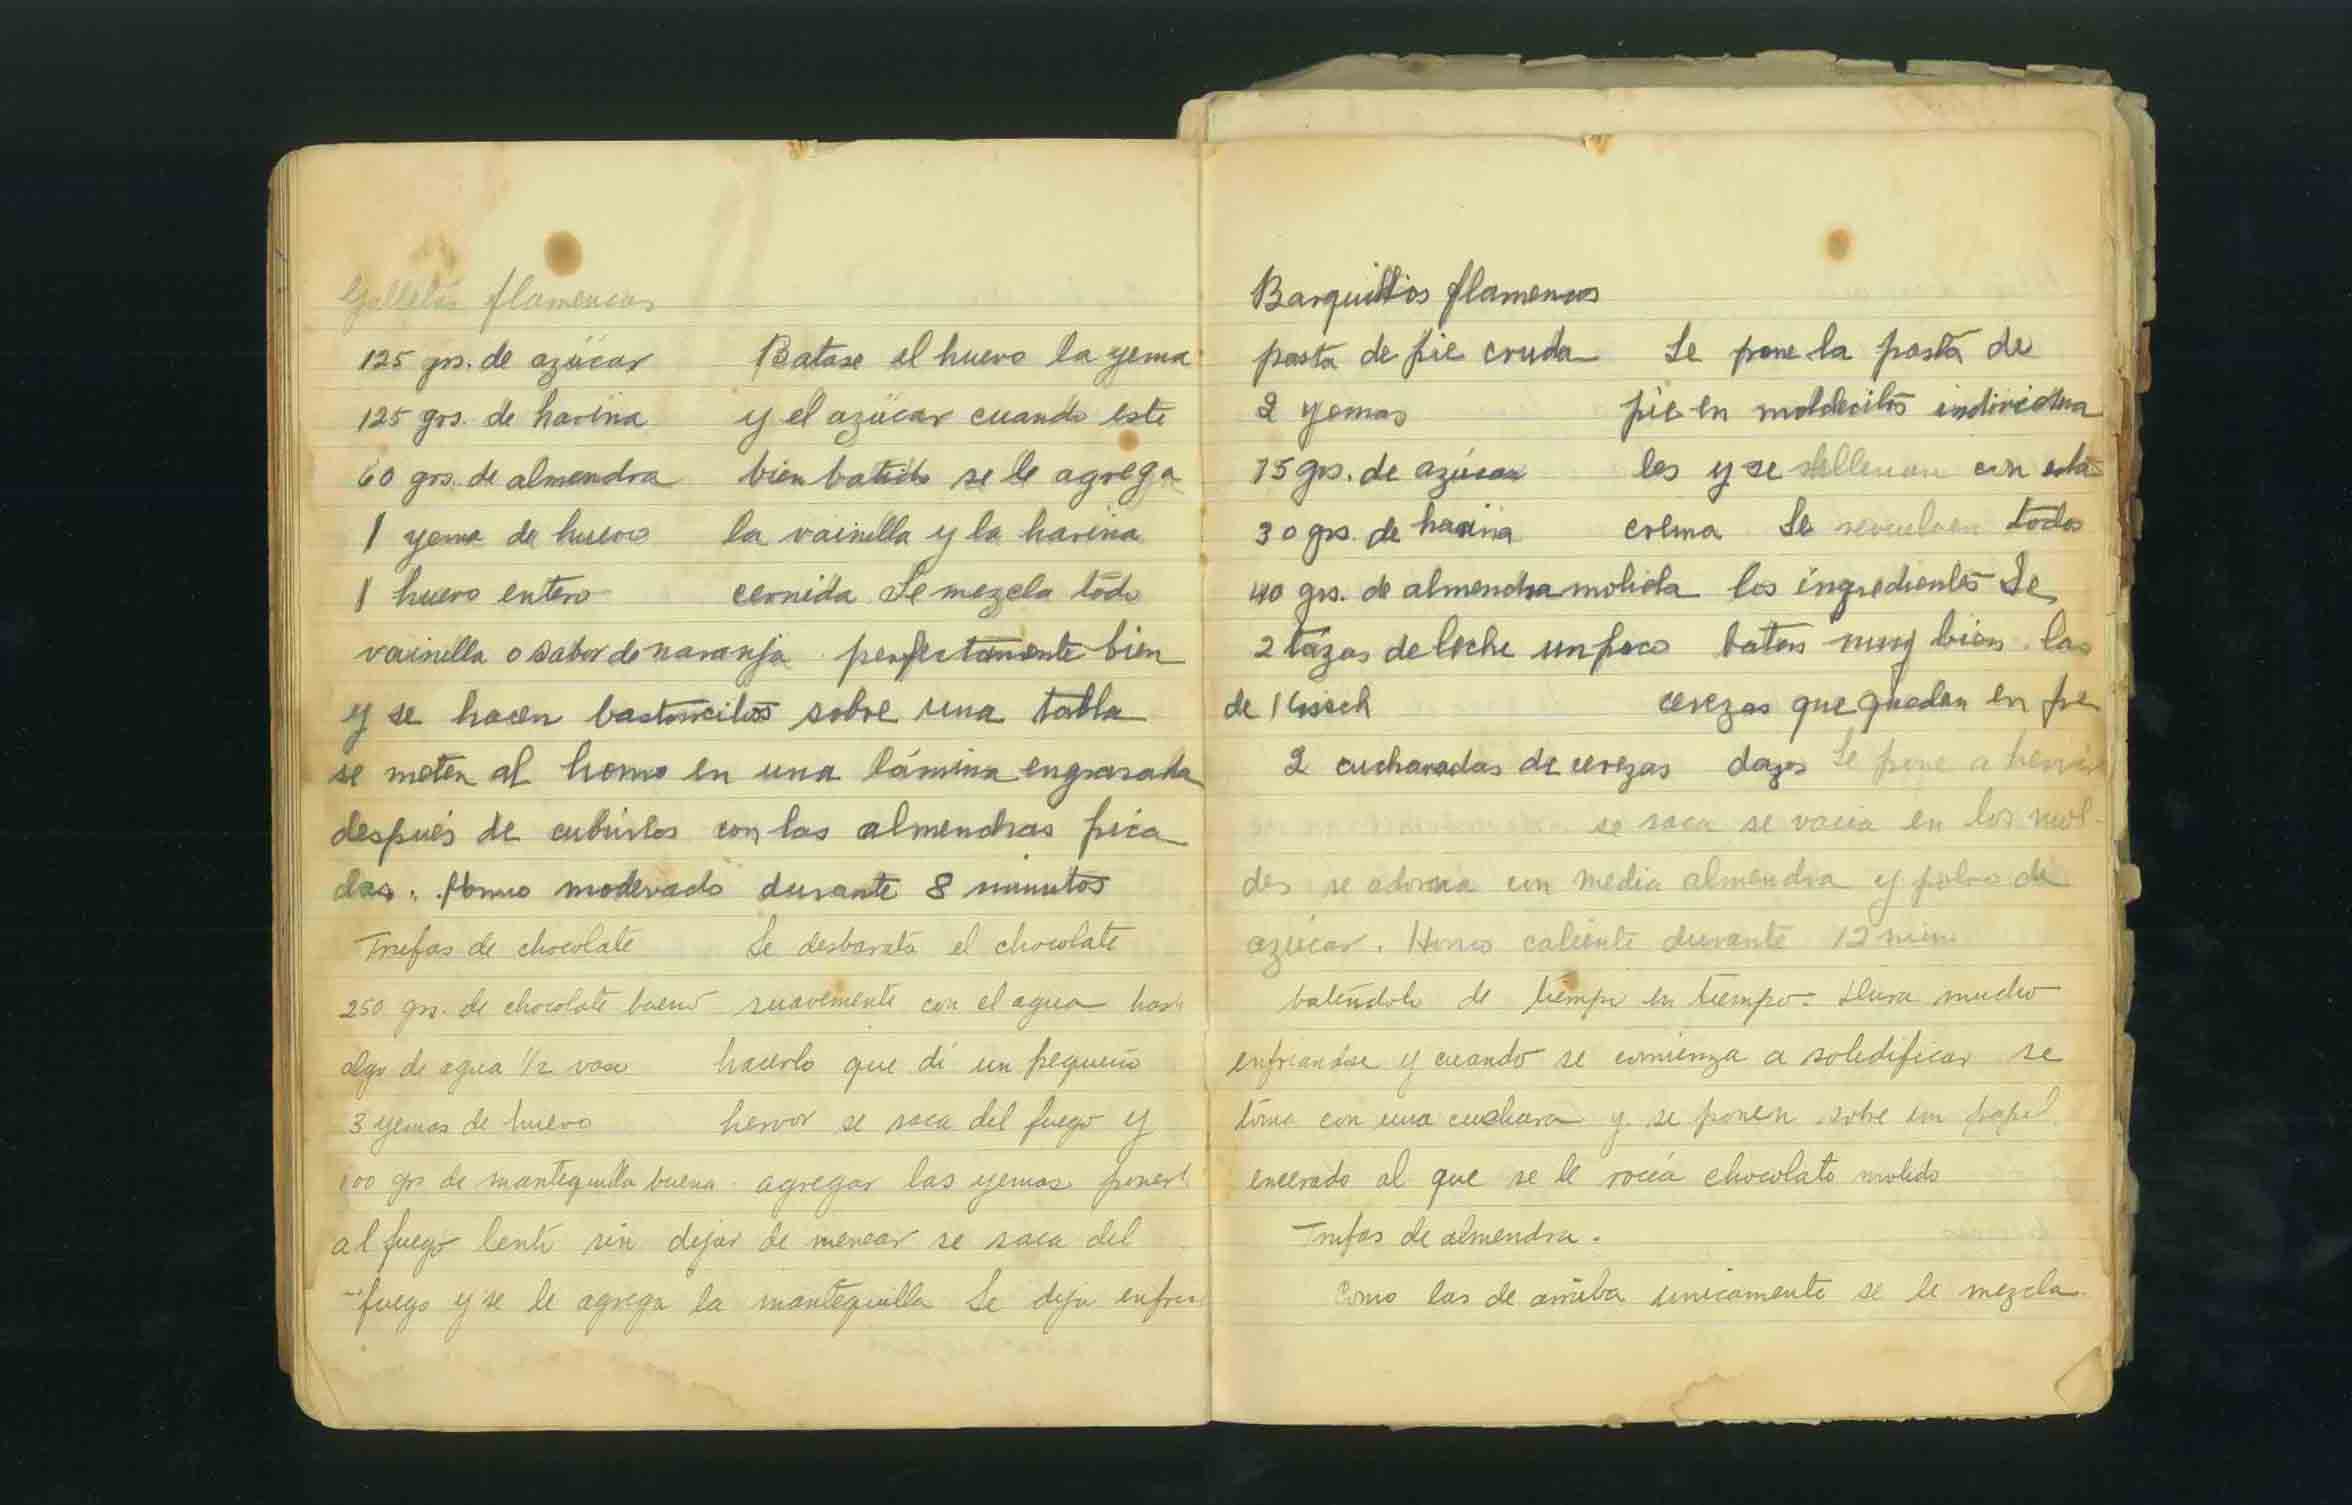 Galletas flamencas
125 grs. de azúcar Batase el huevo la yema
125 grs. de harina y el azúcar cuando este
60 grs. de almendra bien batido se le agrega
1 yema de huevo la vainilla y la harina
1 huevo entero cernida Se mezcla todo
vainilla o sabor de naranja perfectamente bien
y se hacen bastoncitos sobre una tabla
se meten al horno en una lámina engrasada
después de cubrirlos con las almendras pica
das. Horno moderado durante 8 minutos
Trufas de chocolate Se desbarata el chocolate
250 grs. de chocolate bueno suavemente con el agua hasta
algo de agua 1/2 vaso hacerlo que dé un pequeño
3 yemas de huevo hervor se saca del fuego y
100 grs de mantequilla buena agregar las yemas ponerl
al fuego lento sin dejar de menear se saca del
fuego y se le agrega la mantequilla Se deja enfriar
Barquillos flamencos
pasta de pie cruda Se pone la pasta de
2 yemas pie en moldecitos individua
75 grs. de azúcar les y se rellenan con esta
30 grs. de harina crema Se revuelven todos
40 grs. de almendra molida los ingredientes Se
2 tazas de leche un poco baten muy bien las
de Kirsch cerezas que quedan en pe
2 cucharadas de cerezas dazos Se pone a hervir
se saca se vacia en los mol-
des se adorna con media almendra y polvo de
azúcar. Horno caliente durante 12 min
batiéndola de tiempo en tiempo. Dura mucho
enfriandose y cuando se comienza a solidificar se
toma con una cuchara y se ponen sobre un papel
encerado al que se le rocía chocolate molido
Trufas de almendra.
Como las de arriba unicamente se le mezcla